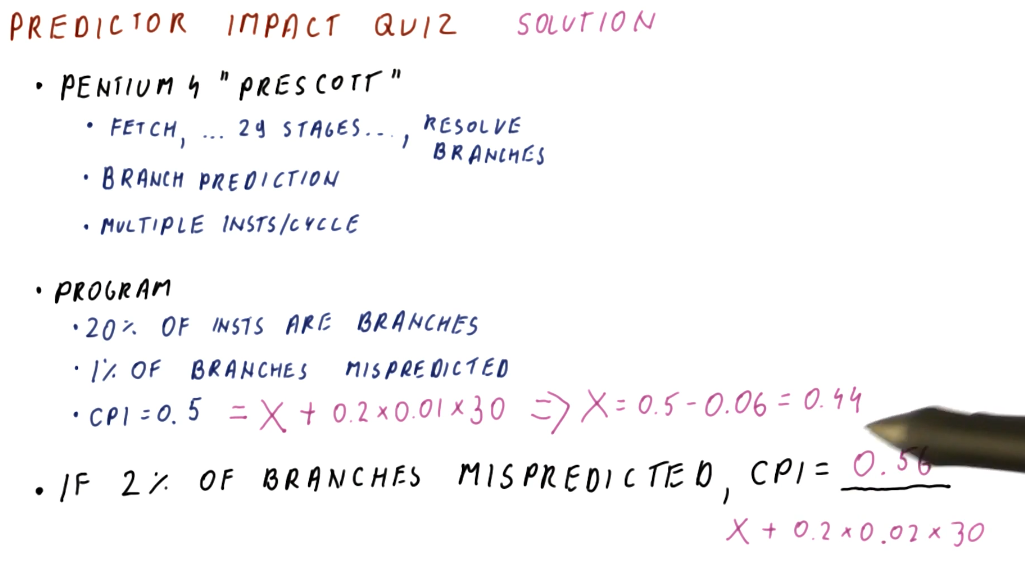 PREDICTOR IMPACT QUIZ SOLUTION
• PENTIUM 4 "PRESCOTT"
• FETCH, ... 29 STAGES..., RESOLVE BRANCHES
• BRANCH PREDICTION
• MULTIPLE INSTS/CYCLE
• PROGRAM
• 20% OF INSTS ARE BRANCHES
• 1% OF BRANCHES MISPREDICTED
• CPI = 0.5 = X + 0.2 × 0.01 × 30 => X = 0.5 - 0.06 = 0.44
• IF 2% OF BRANCHES MISPREDICTED, CPI = 0.56
X + 0.2 × 0.02 × 30